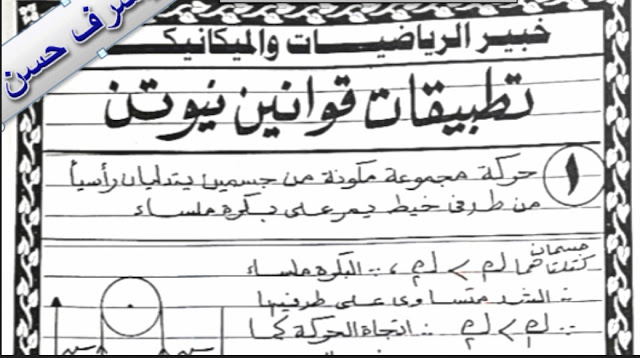 شرف حسن
خبير الرياضيات والميكانيكا
تطبيقات قوانين نيوتن
١
حركة مجموعة مكونة من جسمين يتدليان رأسياً
من طرفى خيط يمر على بكرة ملساء
جسمان
كتلتاهما ، ∵ البكرة ملساء
∴ الشد متساوى على طرفيها
∵ ∴ اتجاه الحركة كما